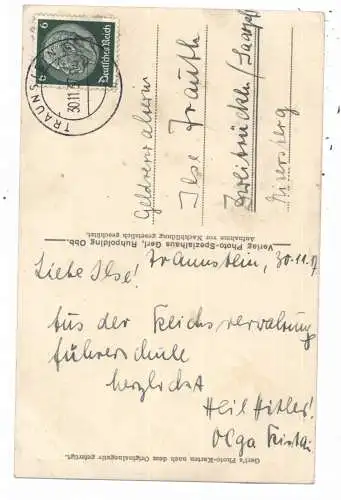 Deutsches Reich
6 6
TRAUNS
30.11.
Ilse
Zweibrücken/Saarpfalz
Verlag Photo-Spezialhaus Gerl, Ruhpolding Obb.
Aufnahme vor Nachbildung gesetzlich geschützt.
Traunstein, 30.11.
Liebe Ilse!
Aus der Reichsverwaltung
führerschule
herzlichst
Heil Hitler!
Olga
Gerl's Photo-Karten nach dem Originalnegativ gefertigt.